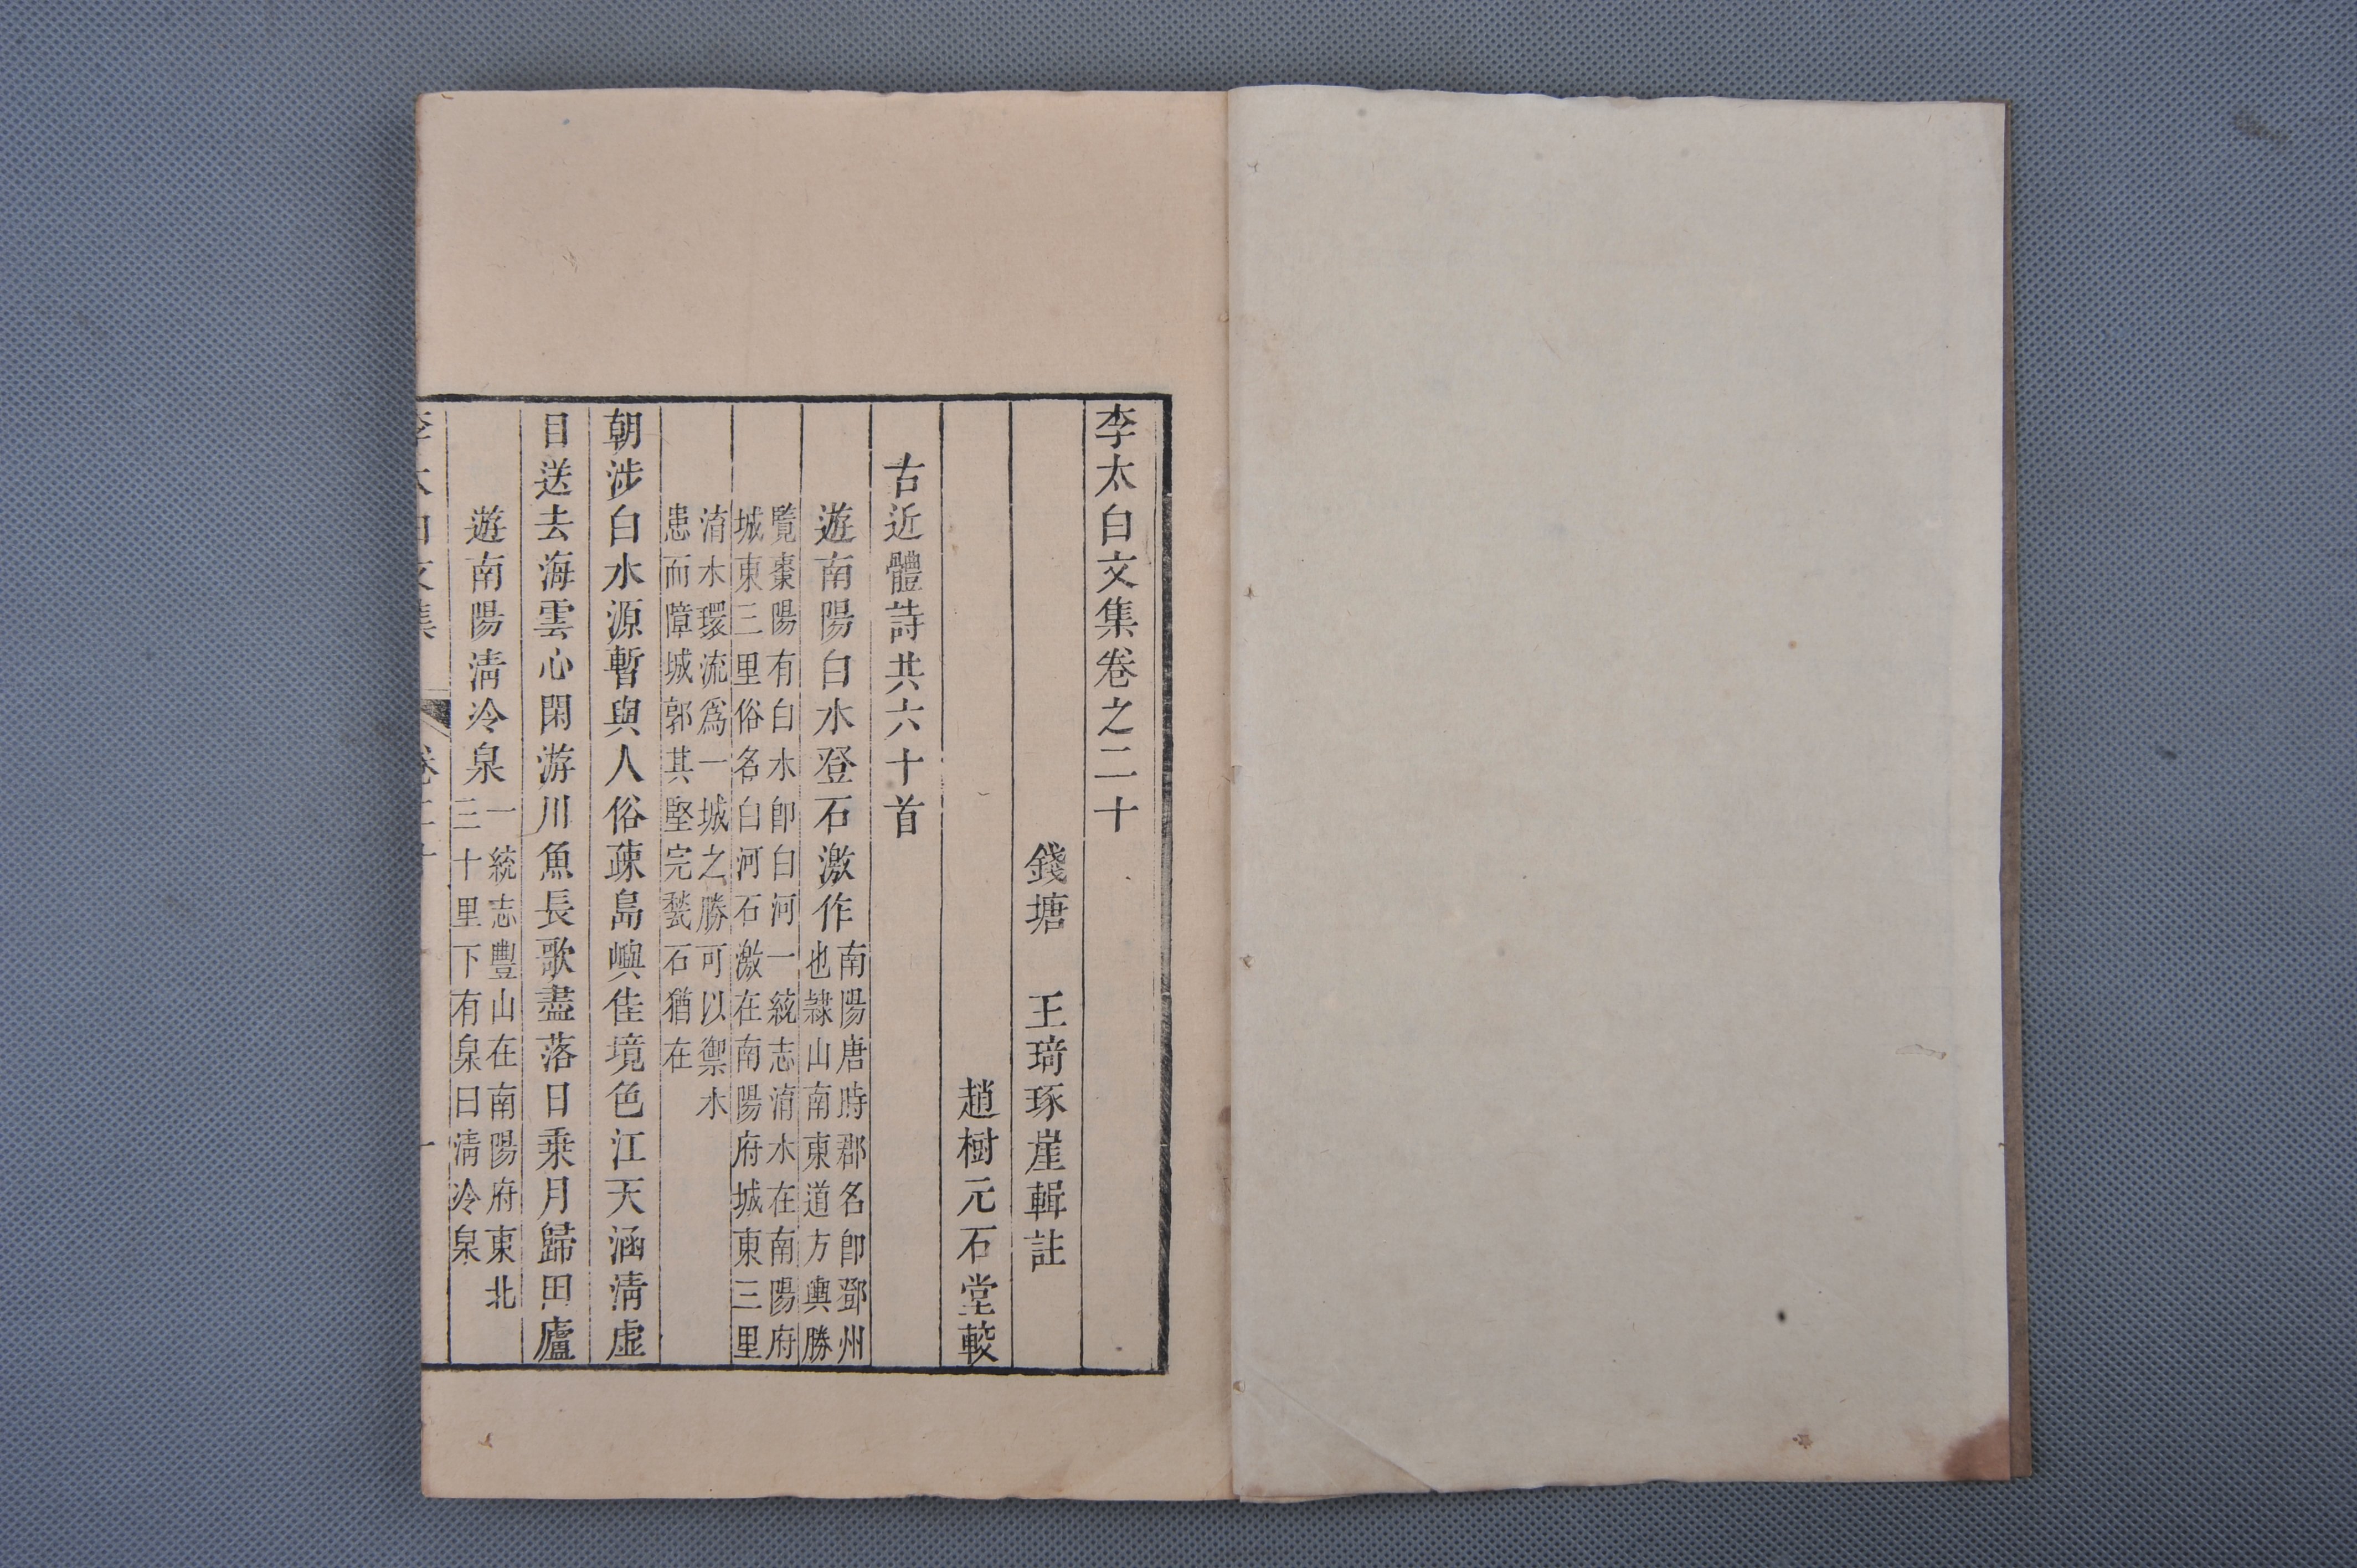 李太白文集卷之二十
錢塘　王琦琢崖輯註
趙樹元石堂較
古近體詩共六十首
遊南陽白水登石激作
南陽唐時郡名卽鄧州
也隷山南東道方輿勝
覽棗陽有白水卽白河一統志淯水在南陽府
城東三里俗名白河石激在南陽府城東三里
淯水環流爲一城之勝可以禦水
患而障城郭其堅完甃石猶在
朝涉白水源暫與人俗疎島嶼佳境色江天涵清虛
目送去海雲心閑游川魚長歌盡落日乗月歸田廬
遊南陽清泠泉
一統志豐山在南陽府東北
三十里下有泉曰清泠泉
李太白文集
卷二十
一